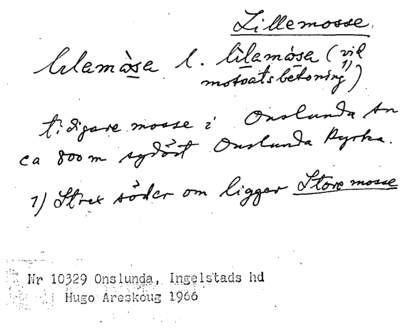 Lillemosse.
lilamåsa l. lilamåsa (vid
motsatsbetoning 1))
tidigare mosse i Onslunda sn
ca 800 m sydöst Onslunda Kyrka.
1) Strax söder om ligger Store mosse
Nr 10329 Onslunda, Ingelstads hd
Hugo Areskoug 1966